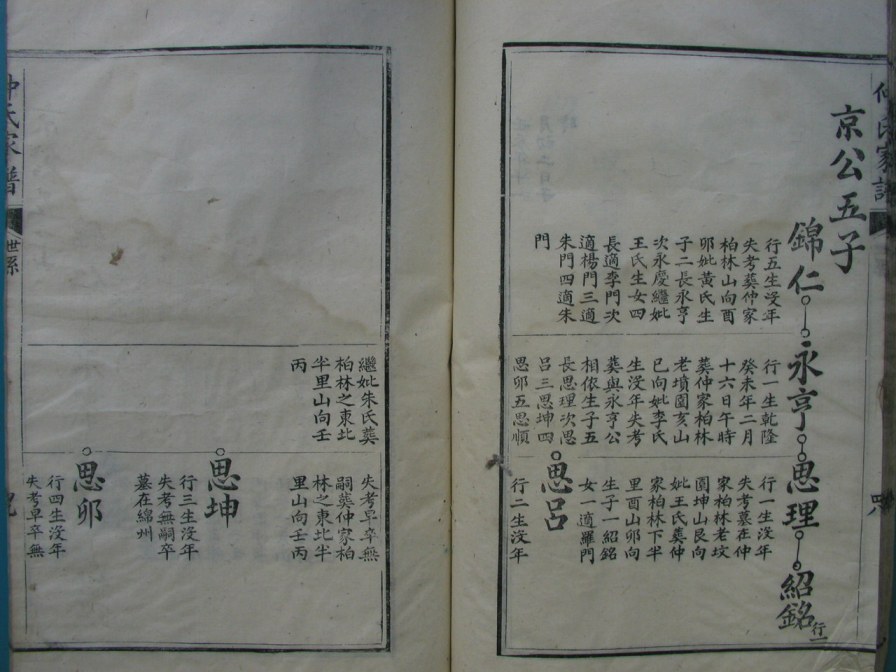 京公五子
錦仁
行五生沒年
失考葬仲家
柏林山向酉
卯妣黃氏生
子二長永亨
次永慶繼妣
王氏生女四
長適李門次
適楊門三適
朱門四適朱
門
永亨
行一生乾隆
癸未年二月
十六日午時
葬仲家柏林
老墳園亥山
巳向妣李氏
生沒年失考
葬與永亨公
相依生子五
長思理次思
呂三思坤四
思卯五思順
思理
行一生沒年
失考墓在仲
家柏林老坟
園坤山艮向
妣王氏葬仲
家柏林下半
里酉山卯向
生子一紹銘
女一適羅門
紹銘
行一
思呂
行二生沒年
繼妣朱氏葬
柏林之東北
半里山向壬
丙
失考早卒無
嗣葬仲家柏
林之東北半
里山向壬丙
思坤
行三生沒年
失考無嗣卒
墓在綿州
思卯
行四生沒年
失考早卒無
氏家譜
世系